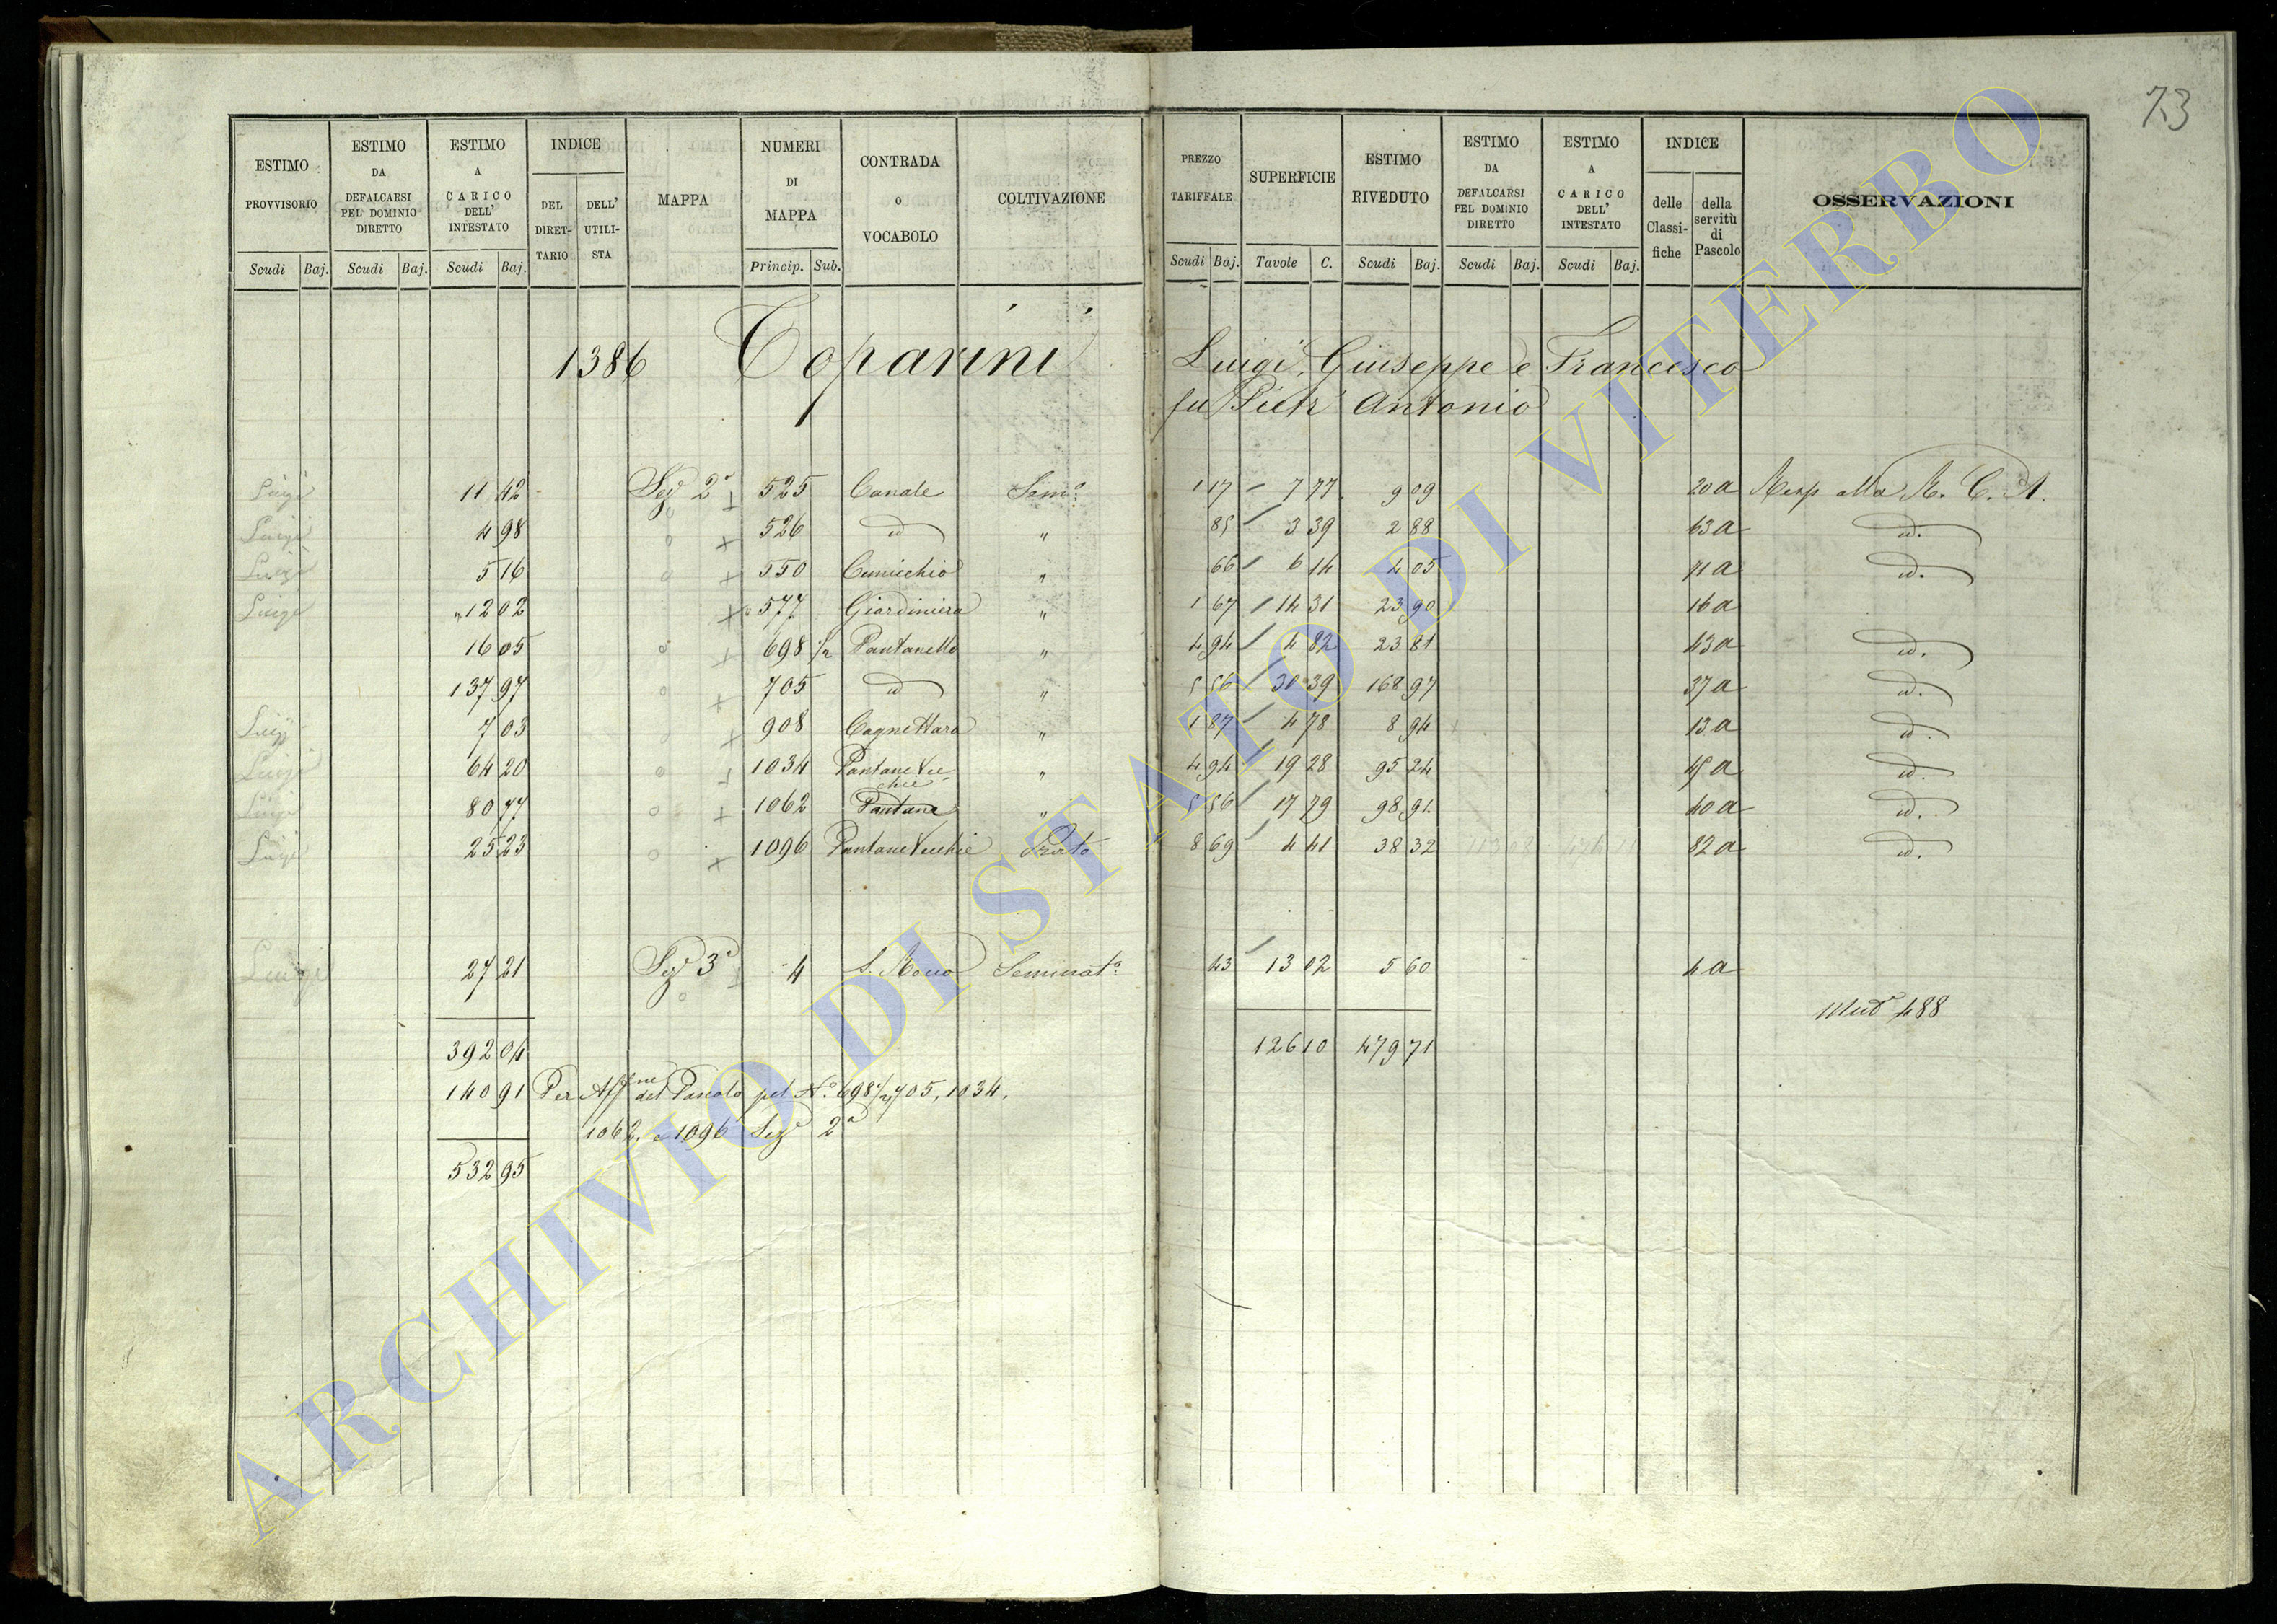 73
ESTIMO PROVVISORIO
ESTIMO DA DEFALCARSI PEL DOMINIO DIRETTO
ESTIMO A CARICO DELL' INTESTATO
INDICE
DEL DIRETTARIO
DELL' UTILISTA
MAPPA
NUMERI DI MAPPA
CONTRADA O VOCABOLO
COLTIVAZIONE
PREZZO TARIFFALE
SUPERFICIE
ESTIMO RIVEDUTO
ESTIMO DA DEFALCARSI PEL DOMINIO DIRETTO
ESTIMO A CARICO DELL' INTESTATO
INDICE
delle Classifiche
della servitù di Pascolo
OSSERVAZIONI
Scudi Baj. Scudi Baj. Scudi Baj. Princip. Sub. Scudi Baj. Tavole C. Scudi Baj. Scudi Baj. Scudi Baj.
1386 Toparini Luigi, Giuseppe e Francesco
fu Pietr' Antonio
Luigi 11 42 Sez 2a 525 Canale Semo 1 17 7 77 9 09 20a Resp alla R. C. A.
Luigi 4 98 526 id " 85 3 39 2 88 63a id.
Luigi 5 16 550 Cunicchio " 66 6 14 4 05 71a id.
Luigi 12 02 577 Giardiniera " 1 67 14 31 23 90 16a
16 05 698 1/2 Pantanello " 4 94 4 82 23 81 43a id.
137 97 705 id " 5 56 30 39 168 97 37a id.
Luigi 7 03 908 Cagnettara " 1 87 4 78 8 94 13a id.
Luigi 64 20 1034 Pantane Vecchie " 4 94 19 28 95 24 45a id.
Luigi 80 77 1062 Pantane " 5 56 17 79 98 91 40a id.
Luigi 25 23 1096 Pantane Vecchie Prato 8 69 4 41 38 32 82a id.
Luigi 27 21 Sez 3a 4 S. Rocco Seminato 43 13 02 5 60 4a
Mud 488
392 04 126 10 479 71
140 91 Per Affne del Pascolo pel No. 698 1/2, 705, 1034,
1062, e 1096 Sez 2a
532 95
ARCHIVIO DI STATO DI VITERBO